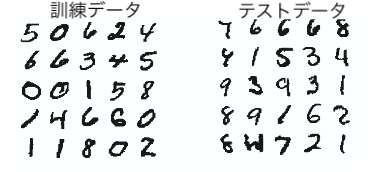 訓練データ
5 0 6 2 4
6 6 3 4 5
0 0 1 5 8
1 4 6 6 0
1 1 8 0 2
テストデータ
7 6 6 6 8
4 1 5 3 4
9 3 9 3 1
8 9 1 6 2
8 7 2 1